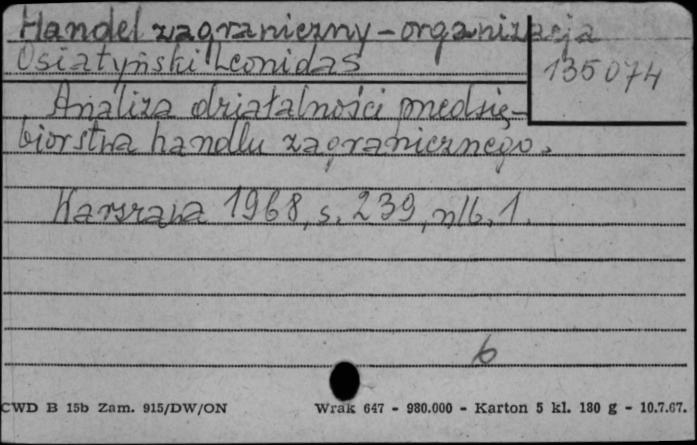 Handel zagraniczny - organizacja
Osiatyński Leonidas
135074
Analiza działalności przedsię-
biorstwa handlu zagranicznego.
Warszawa 1968, s. 239, nlb. 1.
6
CWD B 15b Zam. 915/DW/ON Wrak 647 - 980.000 - Karton 5 kl. 180 g - 10.7.67.